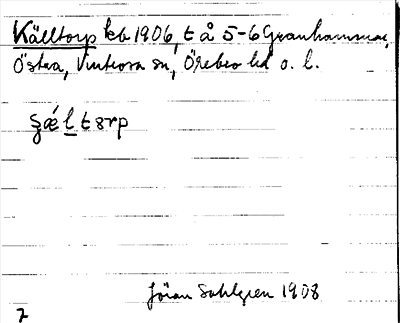 Källtorp kb 1906, t å 5-6 Granhammar,
Östra, Vintrosa sn, Örebro hd o. l.
ʂǽltɔrp
Jöran Sahlgren 1908
7